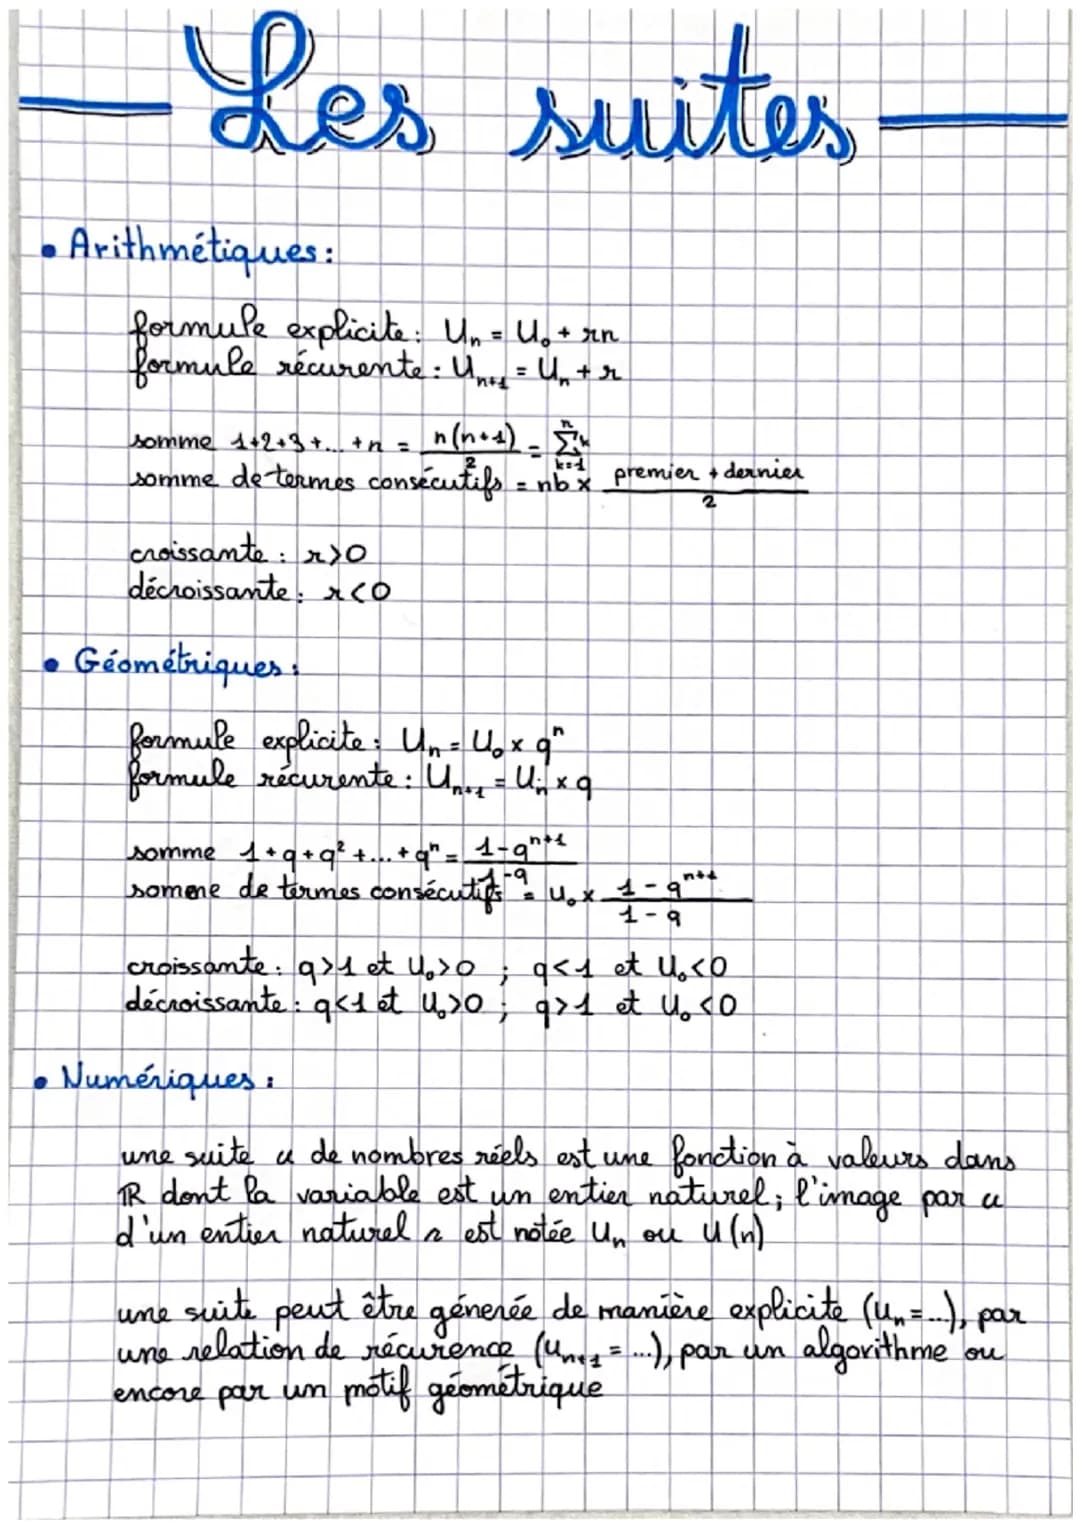 Les suites
• Arithmétiques :
formule explicite : Un = U0 + rn
formule récurente : Un+1 = Un + r
somme 1+2+3+...+n = n(n+1)/2 = ∑(k=1 → n) k
somme de termes consécutifs = nb x (premier + dernier)/2
croissante : r>0
décroissante : r<0
• Géométriques :
formule explicite : Un = U0 x qⁿ
formule récurente : Un+1 = Un x q
somme 1+q+q²+...+qⁿ = (1-qⁿ⁺¹)/(1-q)
somme de termes consécutifs = U0 x (1-qⁿ⁺¹)/(1-q)
croissante : q>1 et U0>0 ; q<1 et U0<0
décroissante : q<1 et U0>0 ; q>1 et U0<0
• Numériques :
une suite u de nombres réels est une fonction à valeurs dans
ℝ dont la variable est un entier naturel ; l'image par u
d'un entier naturel n est notée Un ou U(n)
une suite peut être génerée de manière explicite (Un=...), par
une relation de récurence (Un+1 = ...), par un algorithme ou
encore par un motif géométrique